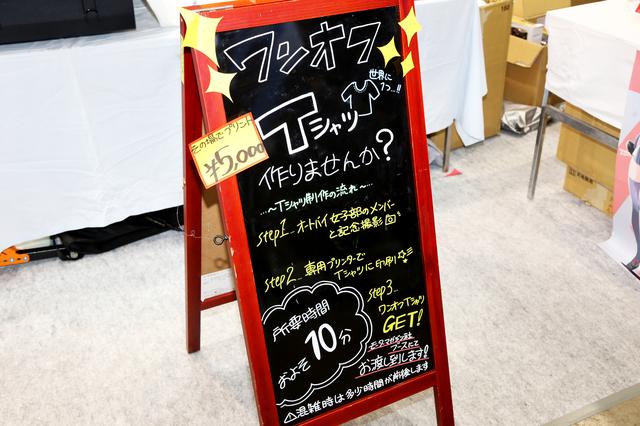 ワンオフ
世界に
1つ…!!
Tシャツ
その場でプリント
¥5,000
作りませんか?
…~Tシャツ制作の流れ~…
step1_ オートバイ女子部のメンバー
と記念撮影
step2_ 専用プリンターで
Tシャツに印刷
step3_
ワンオフTシャツ
GET!
所要時間
およそ10分
モーターマガジン社
ブースにて
お渡し致します!
⚠混雑時は多少時間が前後します